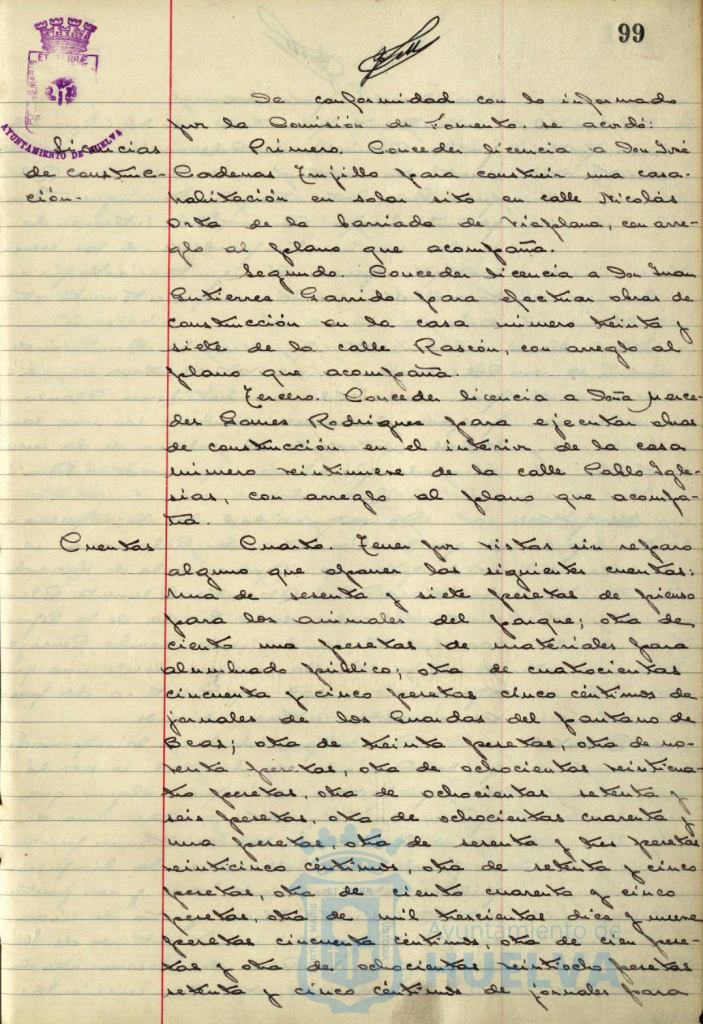 99
AYUNTAMIENTO DE HUELVA
De conformidad con lo informado
por la Comisión de Fomento, se acordó:
Licencias
de construc-
ción.
Primero. Conceder licencia a Don José
Cadenas Trujillo para construir una casa-
habitación en solar sito en calle Nicolás
Orta de la barriada de Viaplana, con arre-
glo al plano que acompaña.
Segundo. Conceder licencia a Don Juan
Gutierres Garrido para efectuar obras de
construcción en la casa número treinta y
siete de la calle Rascón, con arreglo al
plano que acompaña.
Tercero. Conceder licencia a Doña Merce-
des Gomes Rodrigues para ejecutar obras
de construcción en el interior de la casa
número veintinueve de la calle Pablo Igle-
sias, con arreglo al plano que acompa-
ña.
Cuentas
Cuarto. Tener por vistas sin reparo
alguno que oponer las siguientes cuentas:
Una de sesenta y siete pesetas de pienso
para los animales del parque; otra de
ciento una pesetas de materiales para
alumbrado público; otra de cuatrocientas
cincuenta y cinco pesetas cinco céntimos de
jornales de los Guardas del pantano de
Beas; otra de treinta pesetas, otra de no-
venta pesetas, otra de ochocientas veinticua-
tro pesetas, otra de ochocientas setenta y
seis pesetas, otra de ochocientas cuarenta y
una pesetas, otra de sesenta y tres pesetas
veinticinco céntimos, otra de setenta y cinco
pesetas, otra de ciento cuarenta y cinco
pesetas, otra de mil trescientas diez y nueve
pesetas cincuenta céntimos, otra de cien pese-
tas y otra de ochocientas veintiocho pesetas
setenta y cinco céntimos de jornales para
Ayuntamiento de
HUELVA